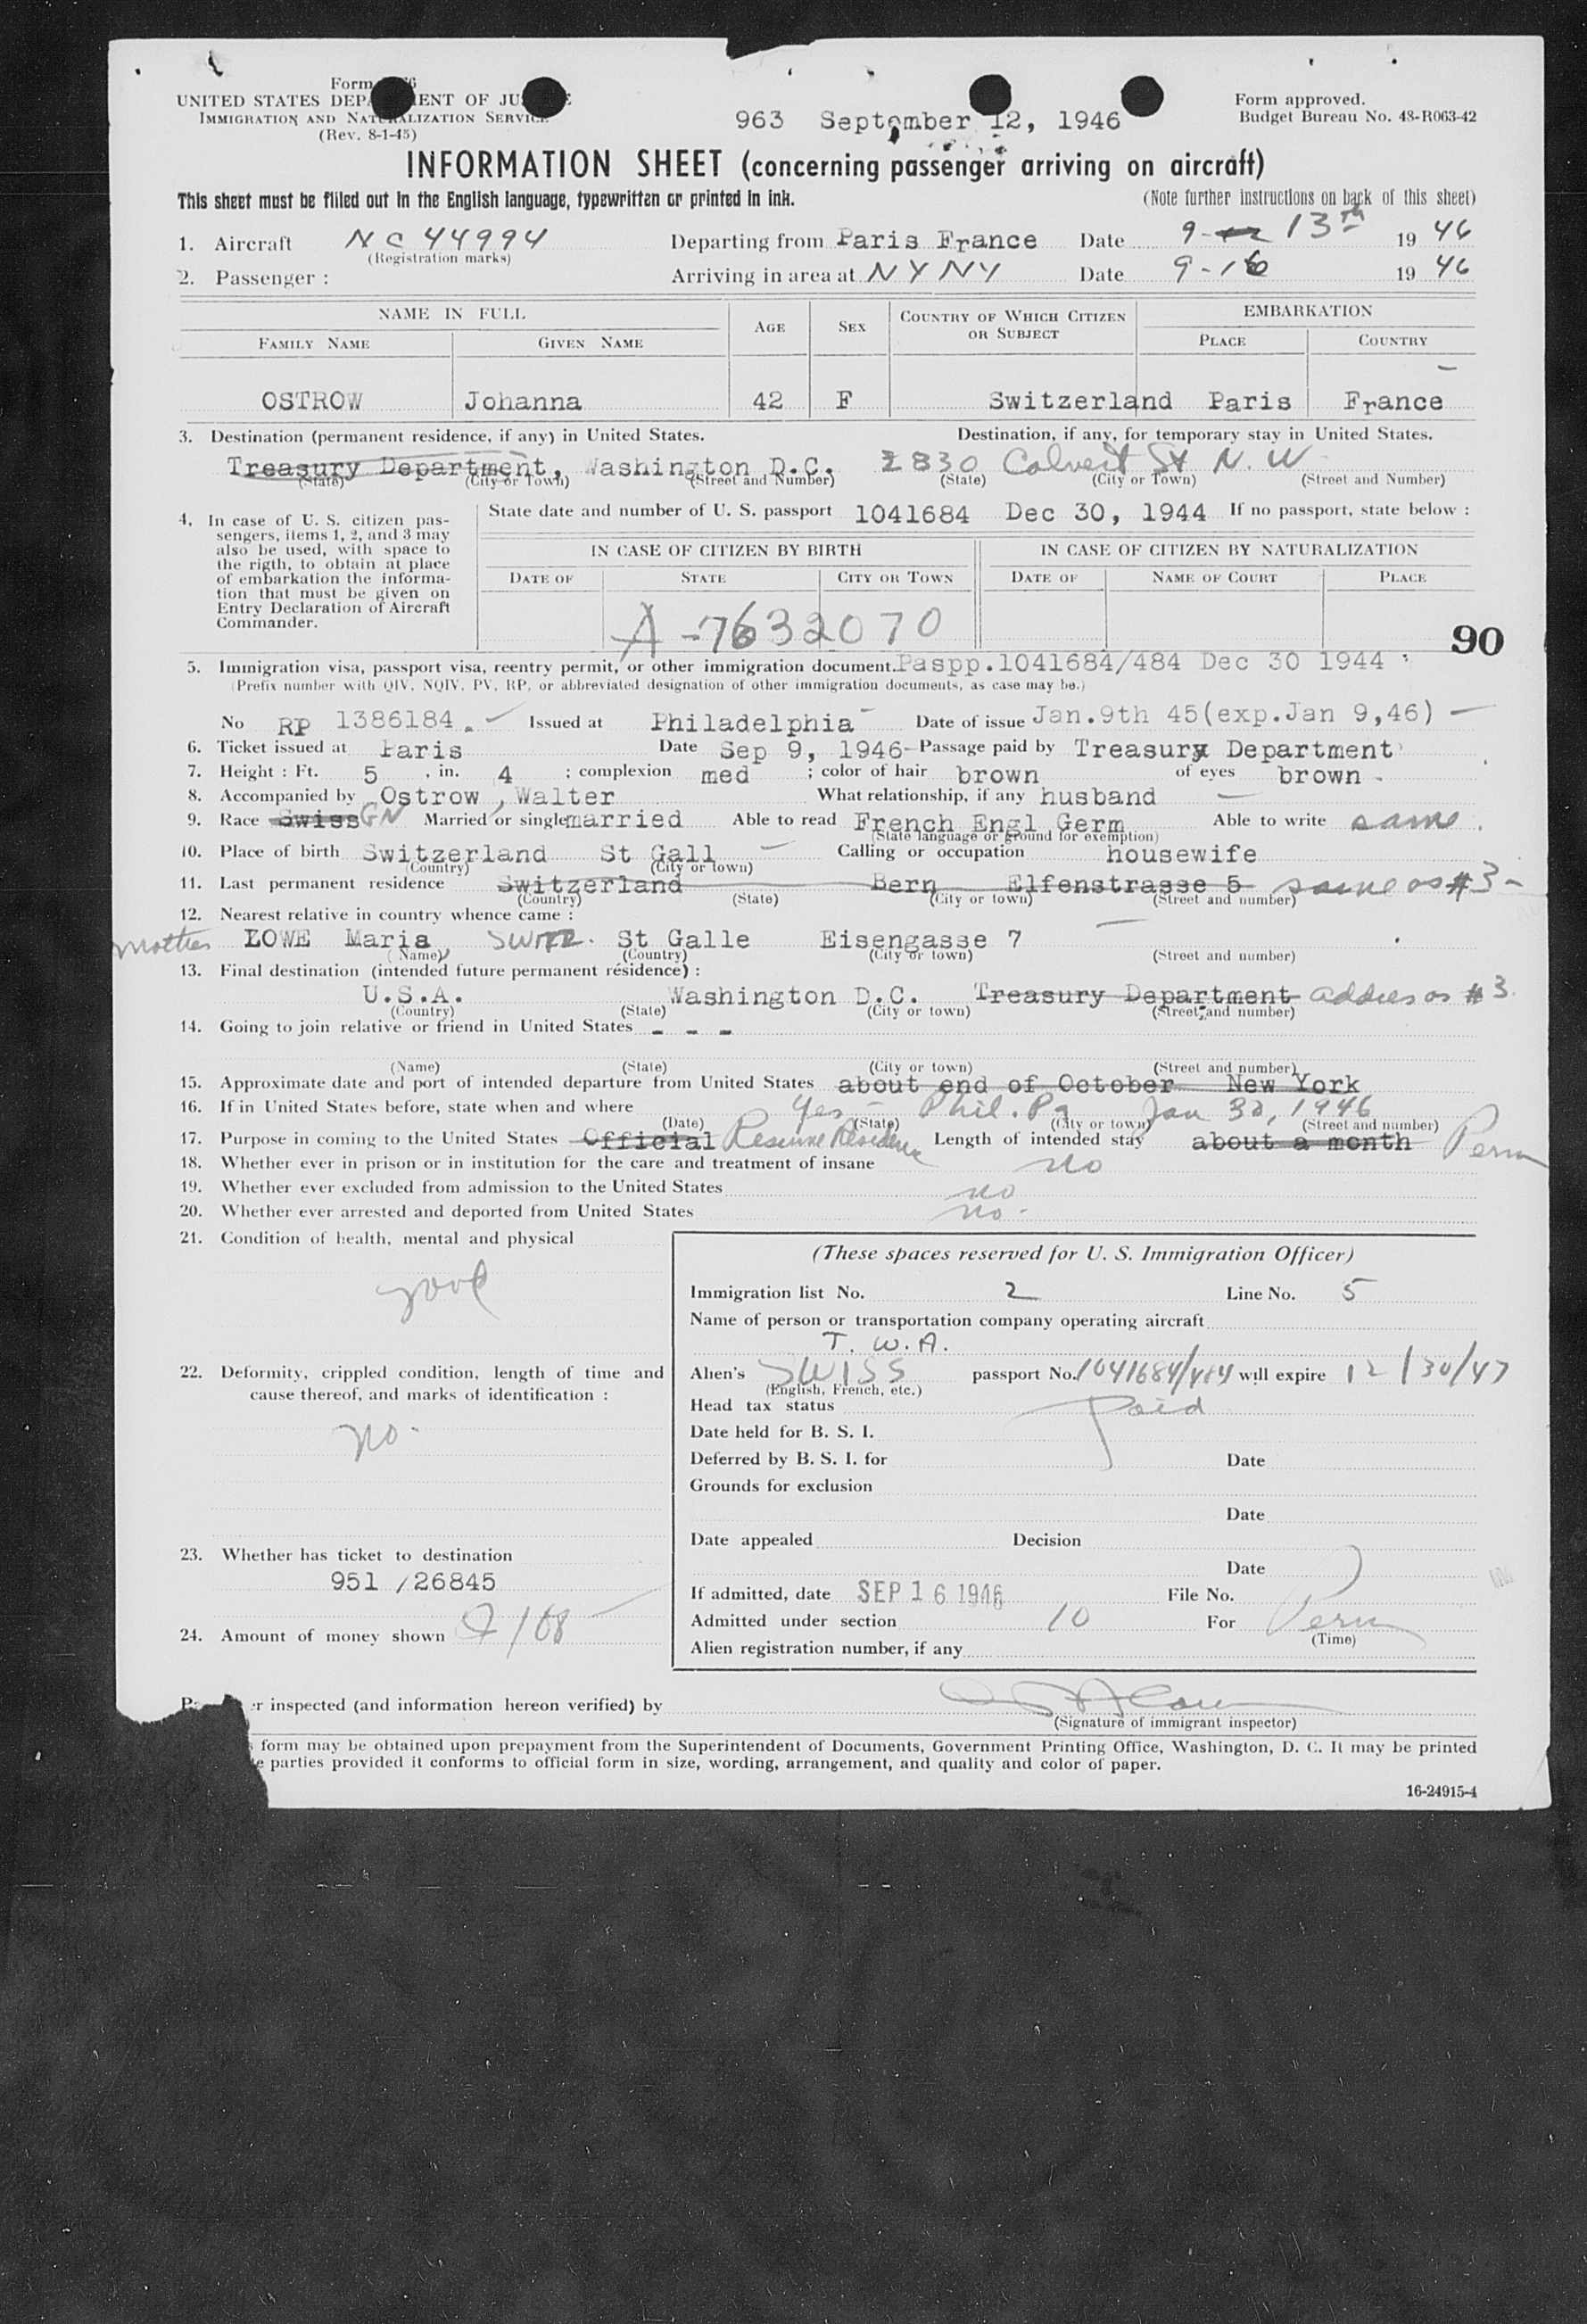 Form
UNITED STATES DEPARTMENT OF JUSTICE
IMMIGRATION AND NATURALIZATION SERVICE
(Rev. 8-1-45)
963 September 12, 1946
Form approved.
Budget Bureau No. 43-R063-42
INFORMATION SHEET (concerning passenger arriving on aircraft)
This sheet must be filled out in the English language, typewritten or printed in ink.
(Note further instructions on back of this sheet)
1. Aircraft NC 44994 Departing from Paris France Date 9-13th 1946
(Registration marks)
2. Passenger : Arriving in area at NY NY Date 9-16 1946
NAME IN FULL AGE SEX COUNTRY OF WHICH CITIZEN OR SUBJECT EMBARKATION
FAMILY NAME GIVEN NAME PLACE COUNTRY
OSTROW Johanna 42 F Switzerland Paris France
3. Destination (permanent residence, if any) in United States. Destination, if any, for temporary stay in United States.
Treasury Department, Washington D.C. 2830 Calvert St N.W
(State) (City or Town) (Street and Number) (State) (City or Town) (Street and Number)
4. In case of U. S. citizen pas-
sengers, items 1, 2, and 3 may
also be used, with space to
the rigth, to obtain at place
of embarkation the informa-
tion that must be given on
Entry Declaration of Aircraft
Commander.
State date and number of U. S. passport 1041684 Dec 30, 1944 If no passport, state below :
IN CASE OF CITIZEN BY BIRTH IN CASE OF CITIZEN BY NATURALIZATION
DATE OF STATE CITY OR TOWN DATE OF NAME OF COURT PLACE
A-7632070
90
5. Immigration visa, passport visa, reentry permit, or other immigration document. Paspp.1041684/484 Dec 30 1944
(Prefix number with QIV, NQIV, PV, RP, or abbreviated designation of other immigration documents, as case may be.)
No RP 1386184. Issued at Philadelphia Date of issue Jan.9th 45(exp.Jan 9,46)
6. Ticket issued at Paris Date Sep 9, 1946 Passage paid by Treasury Department
7. Height : Ft. 5 , in. 4 ; complexion med ; color of hair brown of eyes brown
8. Accompanied by Ostrow, Walter What relationship, if any husband
9. Race Swiss GN Married or single married Able to read French Engl Germ Able to write same.
(State language or ground for exemption)
10. Place of birth Switzerland St Gall Calling or occupation housewife
(Country) (City or town)
11. Last permanent residence Switzerland Bern Elfenstrasse 5 same as #3
(Country) (State) (City or town) (Street and number)
12. Nearest relative in country whence came :
mother LOWE Maria, SWITZ. St Galle Eisengasse 7
(Name) (Country) (City or town) (Street and number)
13. Final destination (intended future permanent résidence) :
U.S.A. Washington D.C. Treasury Department address as #3
(Country) (State) (City or town) (Street and number)
14. Going to join relative or friend in United States - - -
(Name) (State) (City or town) (Street and number)
15. Approximate date and port of intended departure from United States about end of October New York
16. If in United States before, state when and where Yes - Phil. Pa Jan 30, 1946
(Date) (State) (City or town) (Street and number)
17. Purpose in coming to the United States Official Resume Residence Length of intended stay about a month Perm
18. Whether ever in prison or in institution for the care and treatment of insane no
19. Whether ever excluded from admission to the United States no
20. Whether ever arrested and deported from United States no.
21. Condition of health, mental and physical
good
22. Deformity, crippled condition, length of time and
cause thereof, and marks of identification :
no.
23. Whether has ticket to destination
951 /26845
24. Amount of money shown 108
(These spaces reserved for U. S. Immigration Officer)
Immigration list No. 2 Line No. 5
Name of person or transportation company operating aircraft
T. W. A.
Alien's SWISS passport No. 1041684/484 will expire 12/30/47
(English, French, etc.)
Head tax status Paid
Date held for B. S. I.
Deferred by B. S. I. for Date
Grounds for exclusion
Date
Date appealed Decision
Date
If admitted, date SEP 16 1946 File No.
Admitted under section 10 For Perm
(Time)
Alien registration number, if any
r inspected (and information hereon verified) by
(Signature of immigrant inspector)
form may be obtained upon prepayment from the Superintendent of Documents, Government Printing Office, Washington, D. C. It may be printed
parties provided it conforms to official form in size, wording, arrangement, and quality and color of paper.
16-24915-4